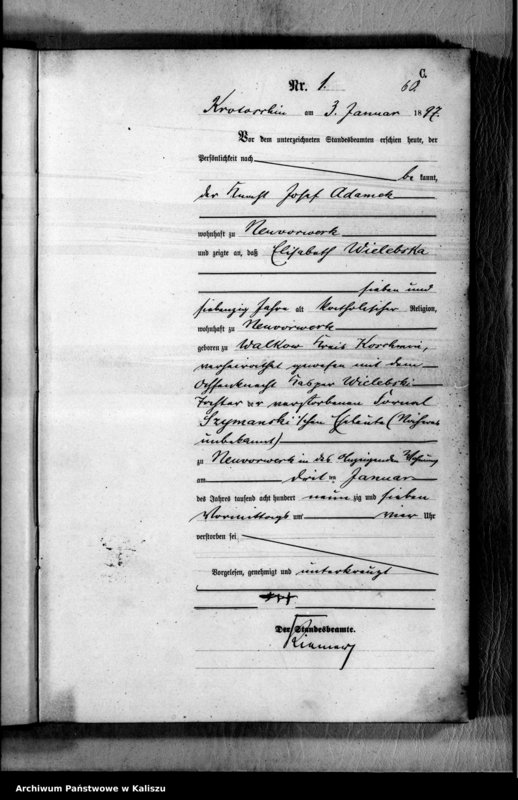 C.
Nr. 1. 60
Krotoschin am 3. Januar 1897.
Vor dem unterzeichneten Standesbeamten erschien heute, der
Persönlichkeit nach
be kannt,
der Knecht Josef Adamek
wohnhaft zu Neuvorwerk
und zeigte an, daß Elisabeth Wielebska
sieben und
siebenzig Jahre alt katholischer Religion,
wohnhaft zu Neuvorwerk
geboren zu Walkow Kreis Koschmin,
verheirathet gewesen mit dem
Ochsenknecht Kaspar Wielebski
Tochter der verstorbenen
Szymanski'schen Eheleute (
unbekannt)
zu Neuvorwerk in des Anzeigenden Wohnung
am drit ten Januar
des Jahres tausend acht hundert neun zig und sieben
Vormittags um vier Uhr
verstorben sei.
Vorgelesen, genehmigt und unterkreuzt
+++
Der Standesbeamte.
Archiwum Państwowe w Kaliszu